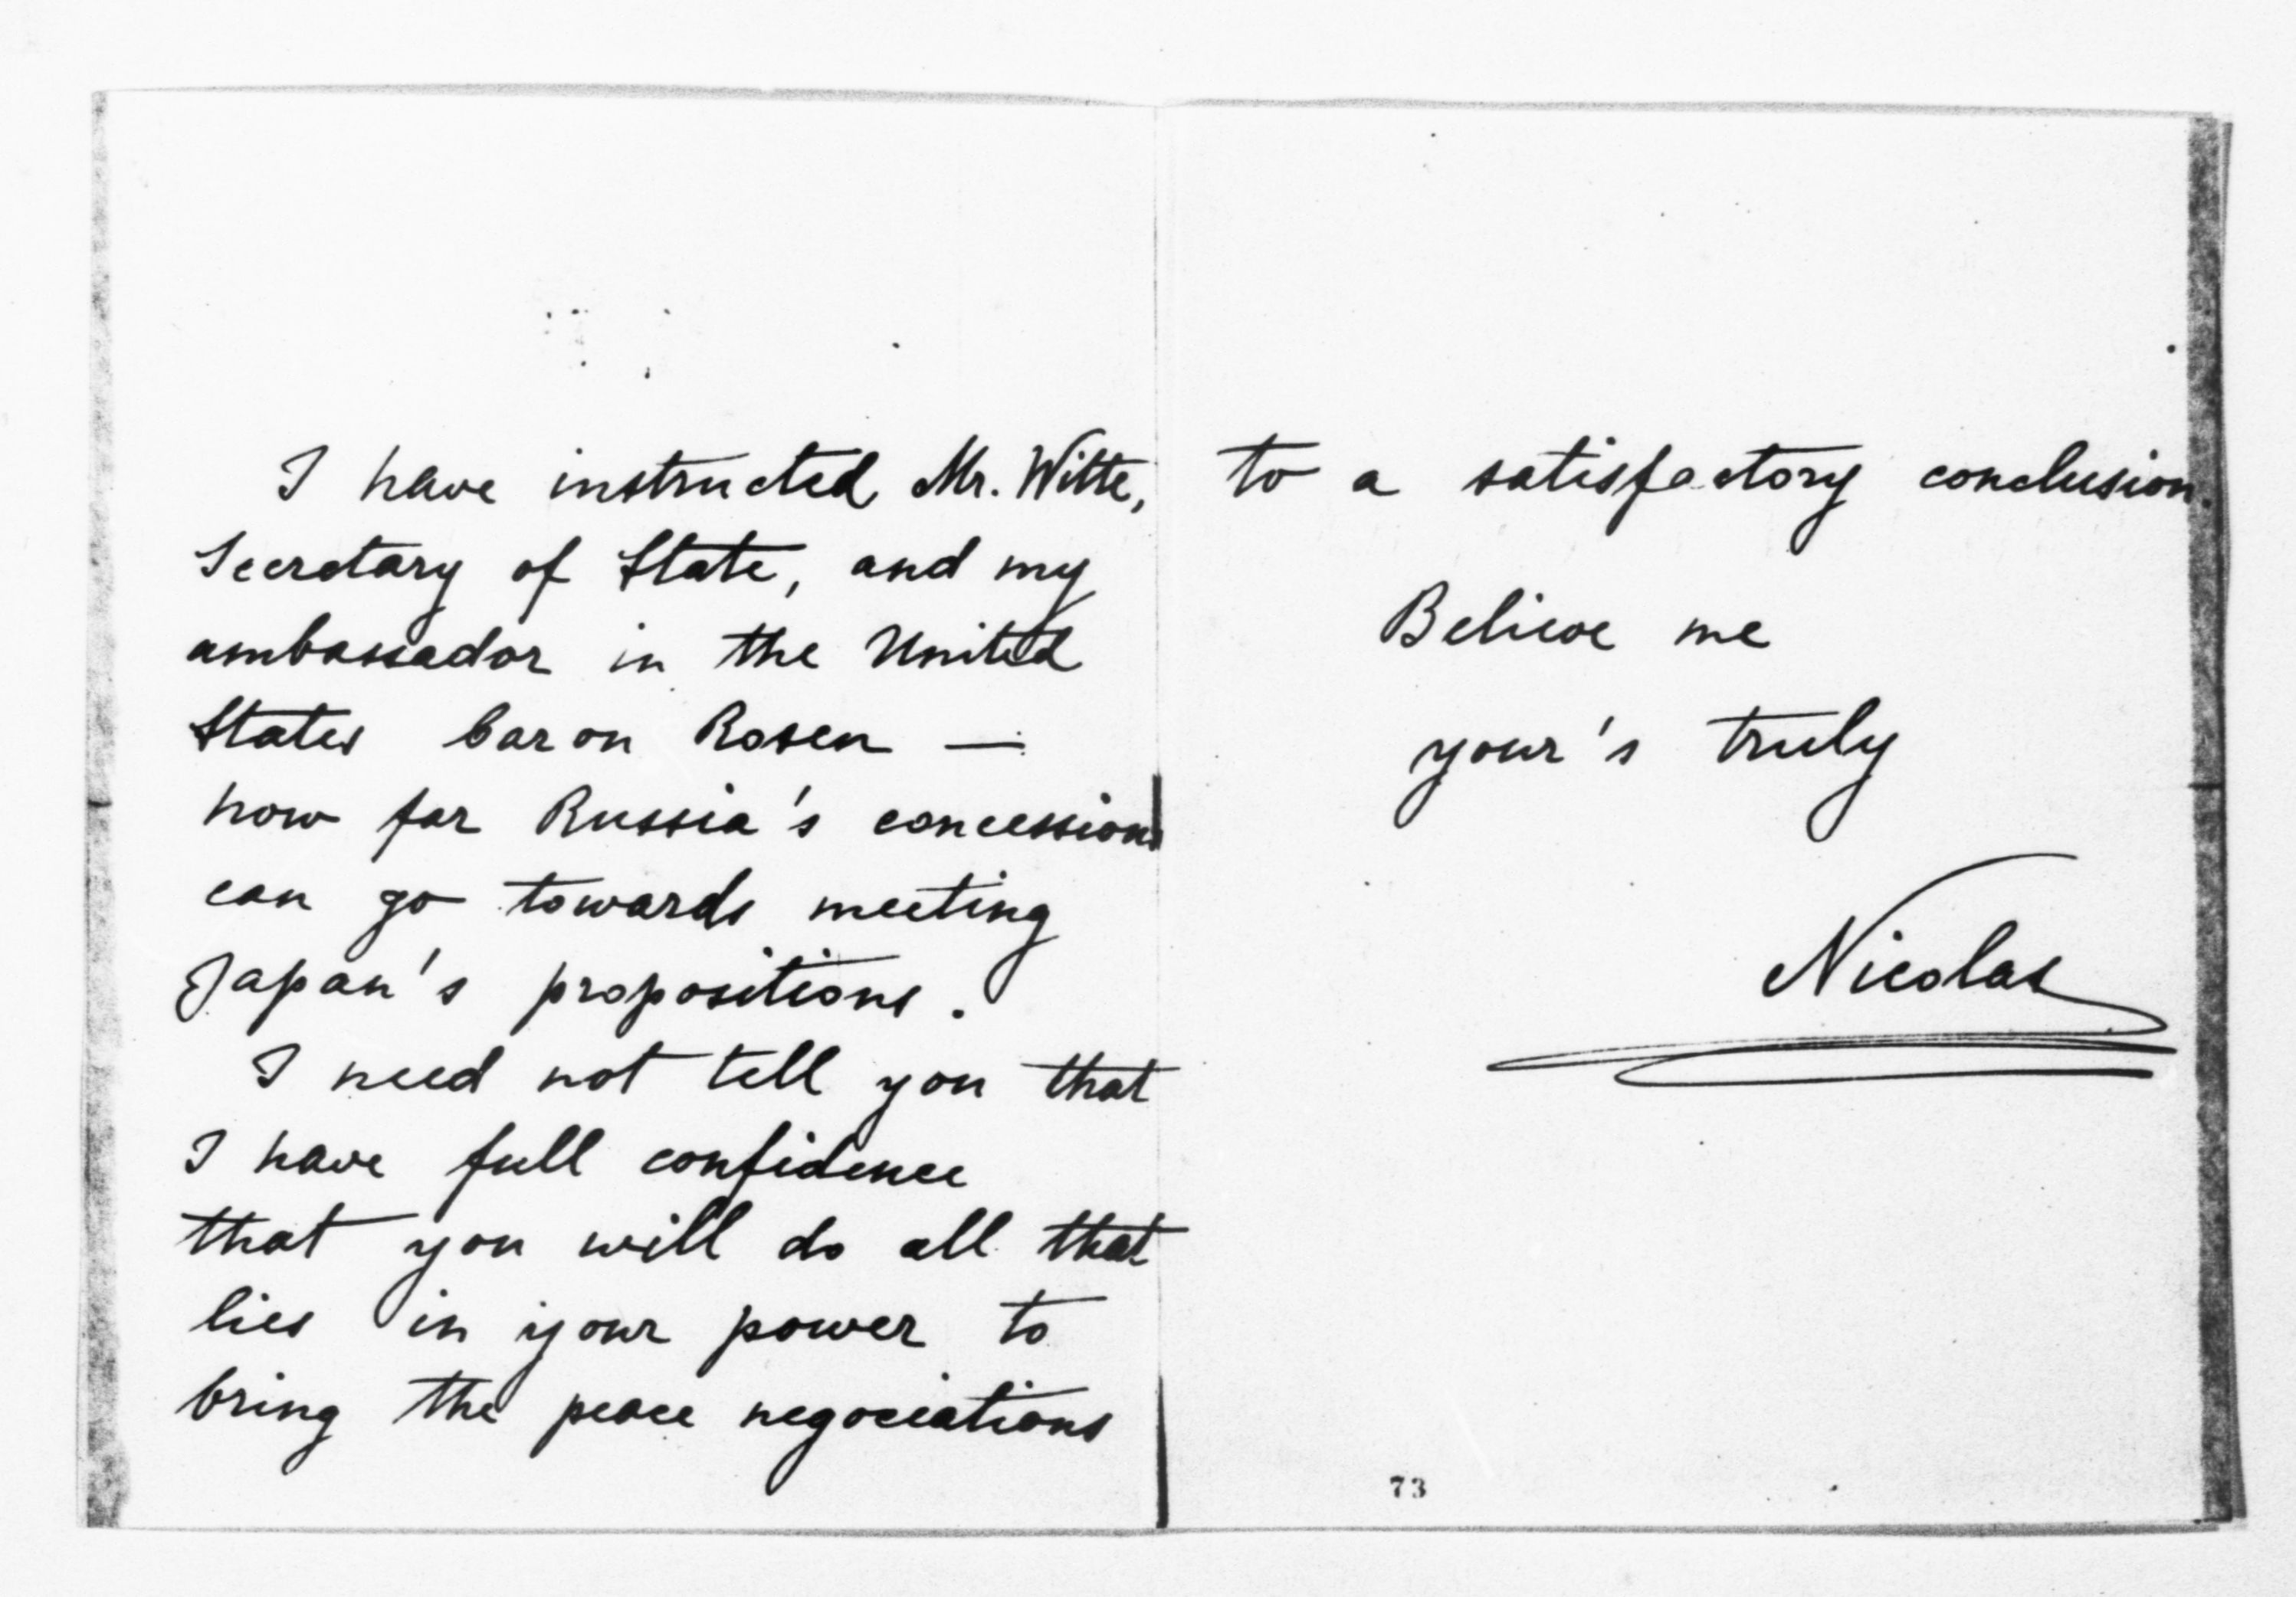 I have instructed Mr. Witte,
Secretary of State, and my
ambassador in the United
States baron Rosen —
how far Russia's concessions
can go towards meeting
Japan's propositions.
I need not tell you that
I have full confidence
that you will do all that
lies in your power to
bring the peace negociations
to a satisfactory conclusion.
Believe me
your's truly
Nicolas
73